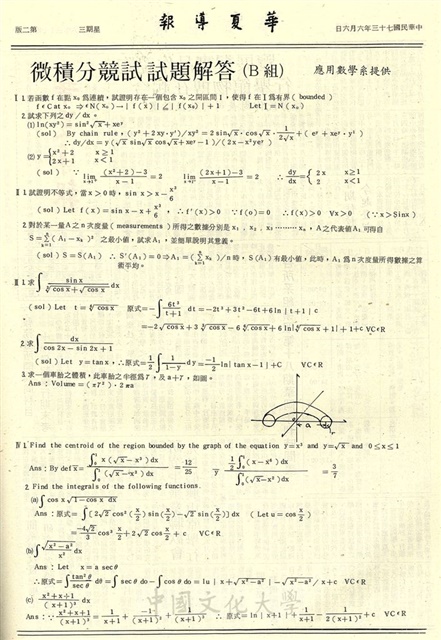 中華民國七十三年六月六日 華夏導報 星期三 第二版
微積分競試試題解答 (B 組) 應用數學系提供
I 1 若函數 f 在點 x₀ 爲連續，試證明存在一個包含 x₀ 之開區間 I，使得 f 在 I 爲有界 ( bounded )
f ϵ C at x₀ ⇒ ∃ N(x₀) → | f (x) | ≤ | f(x₀) | + 1 Let I = N(x₀)
2. 試求下列之 dy / dx。
(1) ln(xy²) = sin²√x + xeʸ
(sol) By chain rule, ( y² + 2xy·y')/xy² = 2 sin√x · cos√x · 1/2√x + ( eʸ + xeʸ · y')
∴ dy/dx = y(√x sin√x cos√x + xeʸ - 1 )/( 2x - x²yeʸ )
(2) y = { x²+2 x≥1
2x+1 x<1
(sol) ∵ lim (x²+2)-3 / x-1 = 2 lim (2x+1)-3 / x-1 = 2 ∴ dy/dx = { 2x x≥1
2 x<1
II 1 試證明不等式，當 x > 0 時，sin x > x - x³/6
(sol) Let f(x) = sin x - x + x³/6 , ∴ f'(x) > 0 ∵ f(o) = 0 ∴ f(x) > 0 ∀x > 0 (∵ x > Sinx )
2. 對於某一量 A 之 n 次度量 ( measurements ) 所得之數據分別是 x₁ , x₂ , x₃ ……… xₙ , A 之代表値 A₁ 可得自
S = Σ ( A₁ - xₖ )² 之最小値，試求 A₁，並簡單說明其意義。
(sol) S = S(A₁) ∴ S'(A₁) = 0 ⇒ A₁ = ( Σ xₖ )/n 時，S(A₁) 有最小値，此時，A₁ 爲 n 次度量所得數據之算
術平均。
III 1 求 ∫ sin x / ∛cos x + √cos x dx
(sol) Let t = ⁶√cos x 原式 = - ∫ 6t³/t+1 dt = -2t³ + 3t² - 6t + 6 ln | t + 1 | c
= -2√cos x + 3 ∛cos x - 6 ⁶√cos x + 6 ln| ⁶√cos x + 1| + 1 + c ∀C ϵ R
2. 求 ∫ dx / cos 2x - sin 2x + 1
(sol) Let y = tan x , ∴ 原式 = 1/2 ∫ 1/1-y dy = -1/2 ln| tan x - 1 | + C ∀C ϵ R
3. 求一個車胎之體積，此車胎之半徑爲 r，及 a + r，如圖。
Ans : Volume = (πr²) · 2πa
a
r
IV 1. Find the centroid of the region bounded by the graph of the equation y = x³ and y = √x and 0 ≤ x ≤ 1
Ans : By def x̄ = ∫₀¹ x(√x - x³) dx / ∫₀¹ (√x - x³) dx = 12/25 ȳ 1/2 ∫₀¹ (x - x⁶) dx / ∫₀¹ (√x - x³) dx = 3/7
2. Find the integrals of the following functions.
(a) ∫ cos x √1 - cos x dx
Ans : 原式 = ∫ [ 2√2 cos²(x/2) sin(x/2) - √2 sin(x/2) ] dx ( Let u = cos x/2 )
= -4√2/3 cos³ x/2 + 2√2 cos x/2 + c ∀C ϵ R
(b) ∫ √x² - a² / x² dx
Ans : Let x = a sec θ
∴ 原式 = ∫ tan²θ / sec θ dθ = ∫ sec θ dθ - ∫ cos θ dθ = ln | x + √x² - a² | - √x² - a² / x + c ∀C ϵ R
(c) x² + x + 1 / (x + 1)³ dx
Ans : ∵ x² + x + 1 / (x + 1)³ = 1/x+1 + -1/(x+1)² + 1/(x+1)³ ∴ 原式 = ln | x + 1 | + 1/x+1 - 1/2(x+1)² + c ∀C ϵ R
中國文化大學